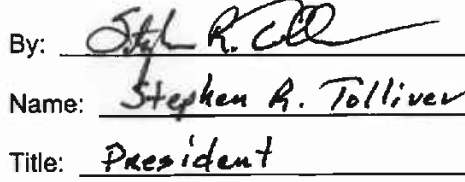 By: Stephen R. Tolliver
Name: Stephen R. Tolliver
Title: President